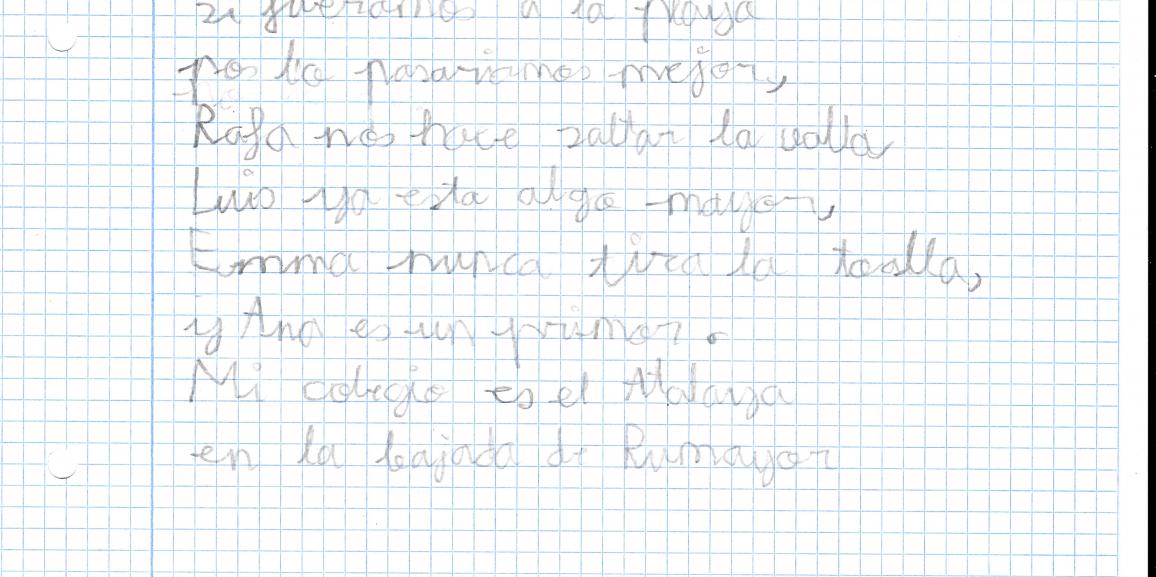 si fueramos a la playa
pos lo pasariamos mejor,
Rafa nos hace saltar la valla
Luis ya esta algo mayor,
Emma nunca tira la toalla,
y Ana es un primor.
Mi colegio es el Atalaya
en la bajada de Rumayor